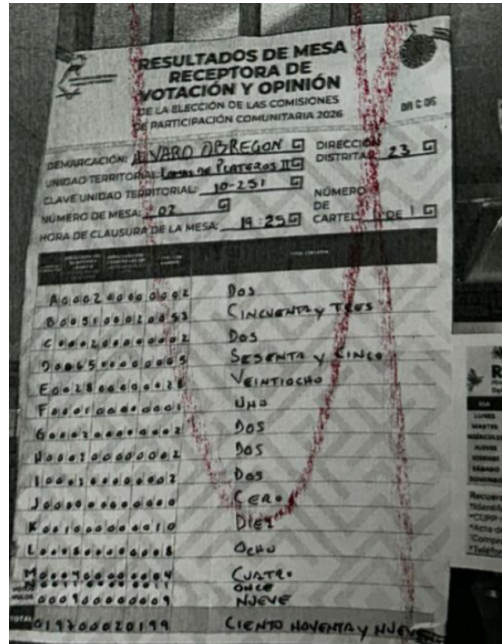 RESULTADOS DE MESA
RECEPTORA DE
VOTACIÓN Y OPINIÓN
DE LA ELECCIÓN DE LAS COMISIONES
DE PARTICIPACIÓN COMUNITARIA 2026
DEMARCACIÓN: ALVARO OBREGON
DIRECCIÓN
DISTRITAL: 23
UNIDAD TERRITORIAL: LOMAS DE PLATEROS II
CLAVE UNIDAD TERRITORIAL: 10-251
NÚMERO DE MESA: 02
NÚMERO
DE
CARTEL 1 DE 1
HORA DE CLAUSURA DE LA MESA: 19:25
A 0002 0000 0002 DOS
B 0051 0002 0053 CINCUENTA Y TRES
C 0002 0000 0002 DOS
D SESENTA Y CINCO
E 0028 0000 0028 VEINTIOCHO
F 0001 0000 0001 UNO
G 0002 0000 0002 DOS
H 0002 0000 0002 DOS
I 0002 0000 0002 DOS
J 0000 0000 0000 CERO
K 0010 0000 0010 DIEZ
L 0008 0000 0008 OCHO
M 0004 0000 0004 CUATRO
N ONCE
0009 0000 0009 NUEVE
TOTAL 0197 0002 0199 CIENTO NOVENTA Y NUEVE
DIA
LUNES
MARTES
MIÉRCOLES
JUEVES
VIERNES
SÁBADO
DOMINGO